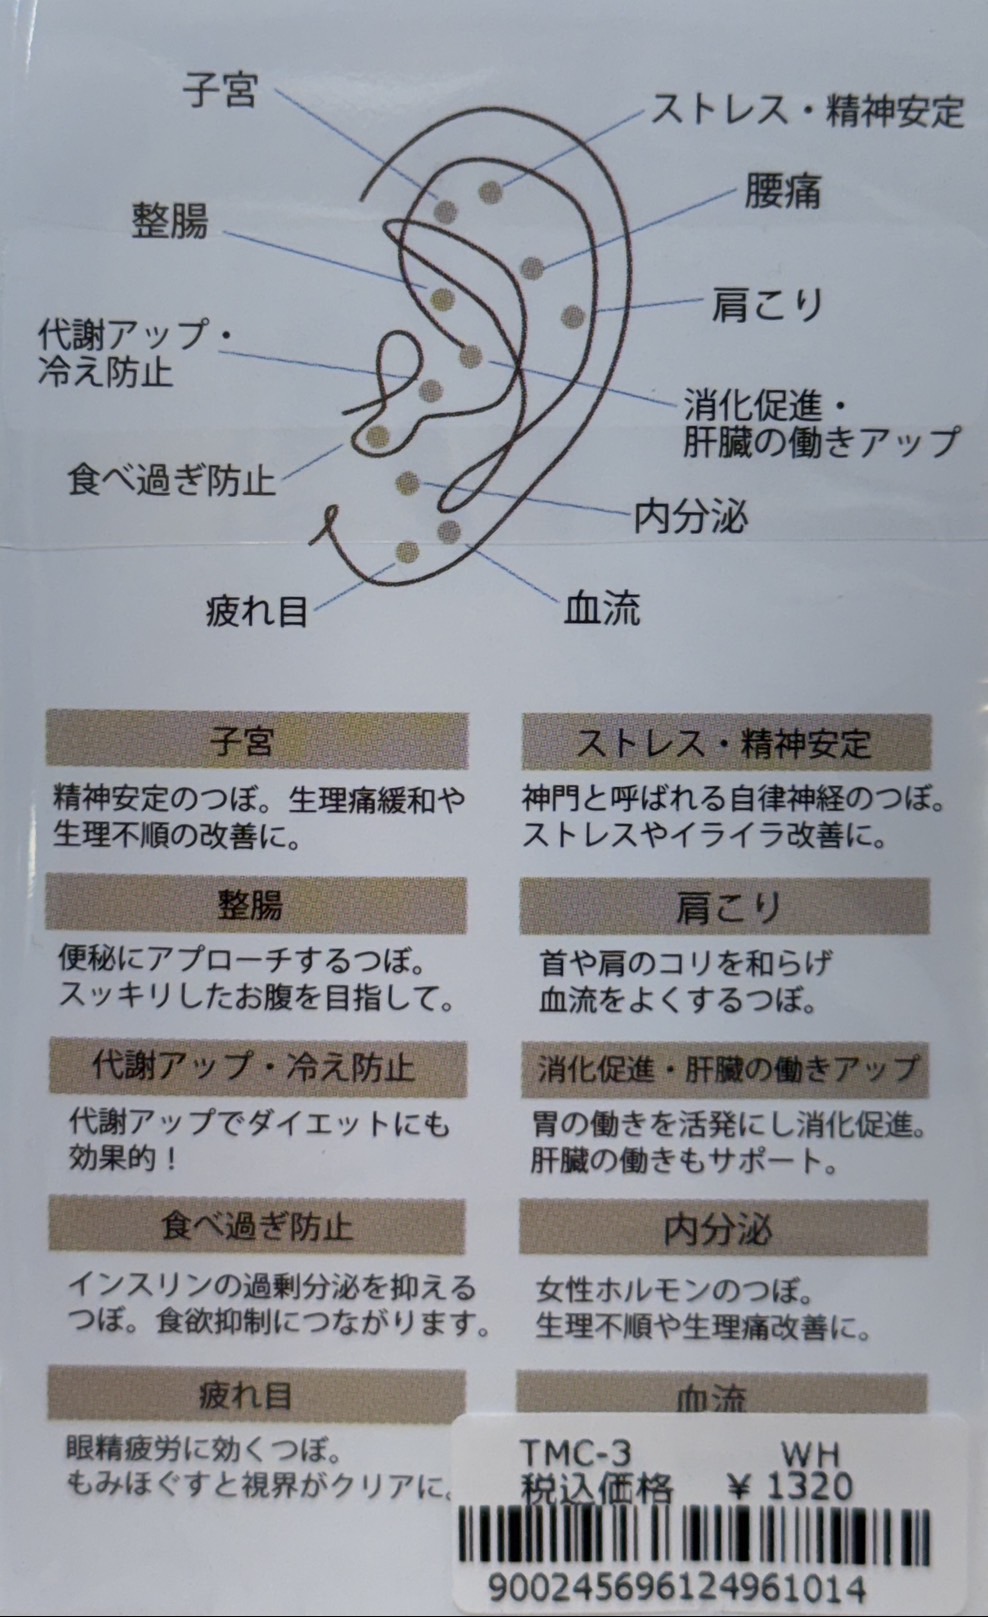 子宮
ストレス・精神安定
腰痛
整腸
肩こり
代謝アップ・
冷え防止
消化促進・
肝臓の働きアップ
食べ過ぎ防止
内分泌
疲れ目
血流
子宮
精神安定のつぼ。生理痛緩和や
生理不順の改善に。
ストレス・精神安定
神門と呼ばれる自律神経のつぼ。
ストレスやイライラ改善に。
整腸
便秘にアプローチするつぼ。
スッキリしたお腹を目指して。
肩こり
首や肩のコリを和らげ
血流をよくするつぼ。
代謝アップ・冷え防止
代謝アップでダイエットにも
効果的！
消化促進・肝臓の働きアップ
胃の働きを活発にし消化促進。
肝臓の働きもサポート。
食べ過ぎ防止
インスリンの過剰分泌を抑える
つぼ。食欲抑制につながります。
内分泌
女性ホルモンのつぼ。
生理不順や生理痛改善に。
疲れ目
眼精疲労に効くつぼ。
もみほぐすと視界がクリアに。
血流
TMC-3 WH
税込価格 ¥ 1320
900245696124961014